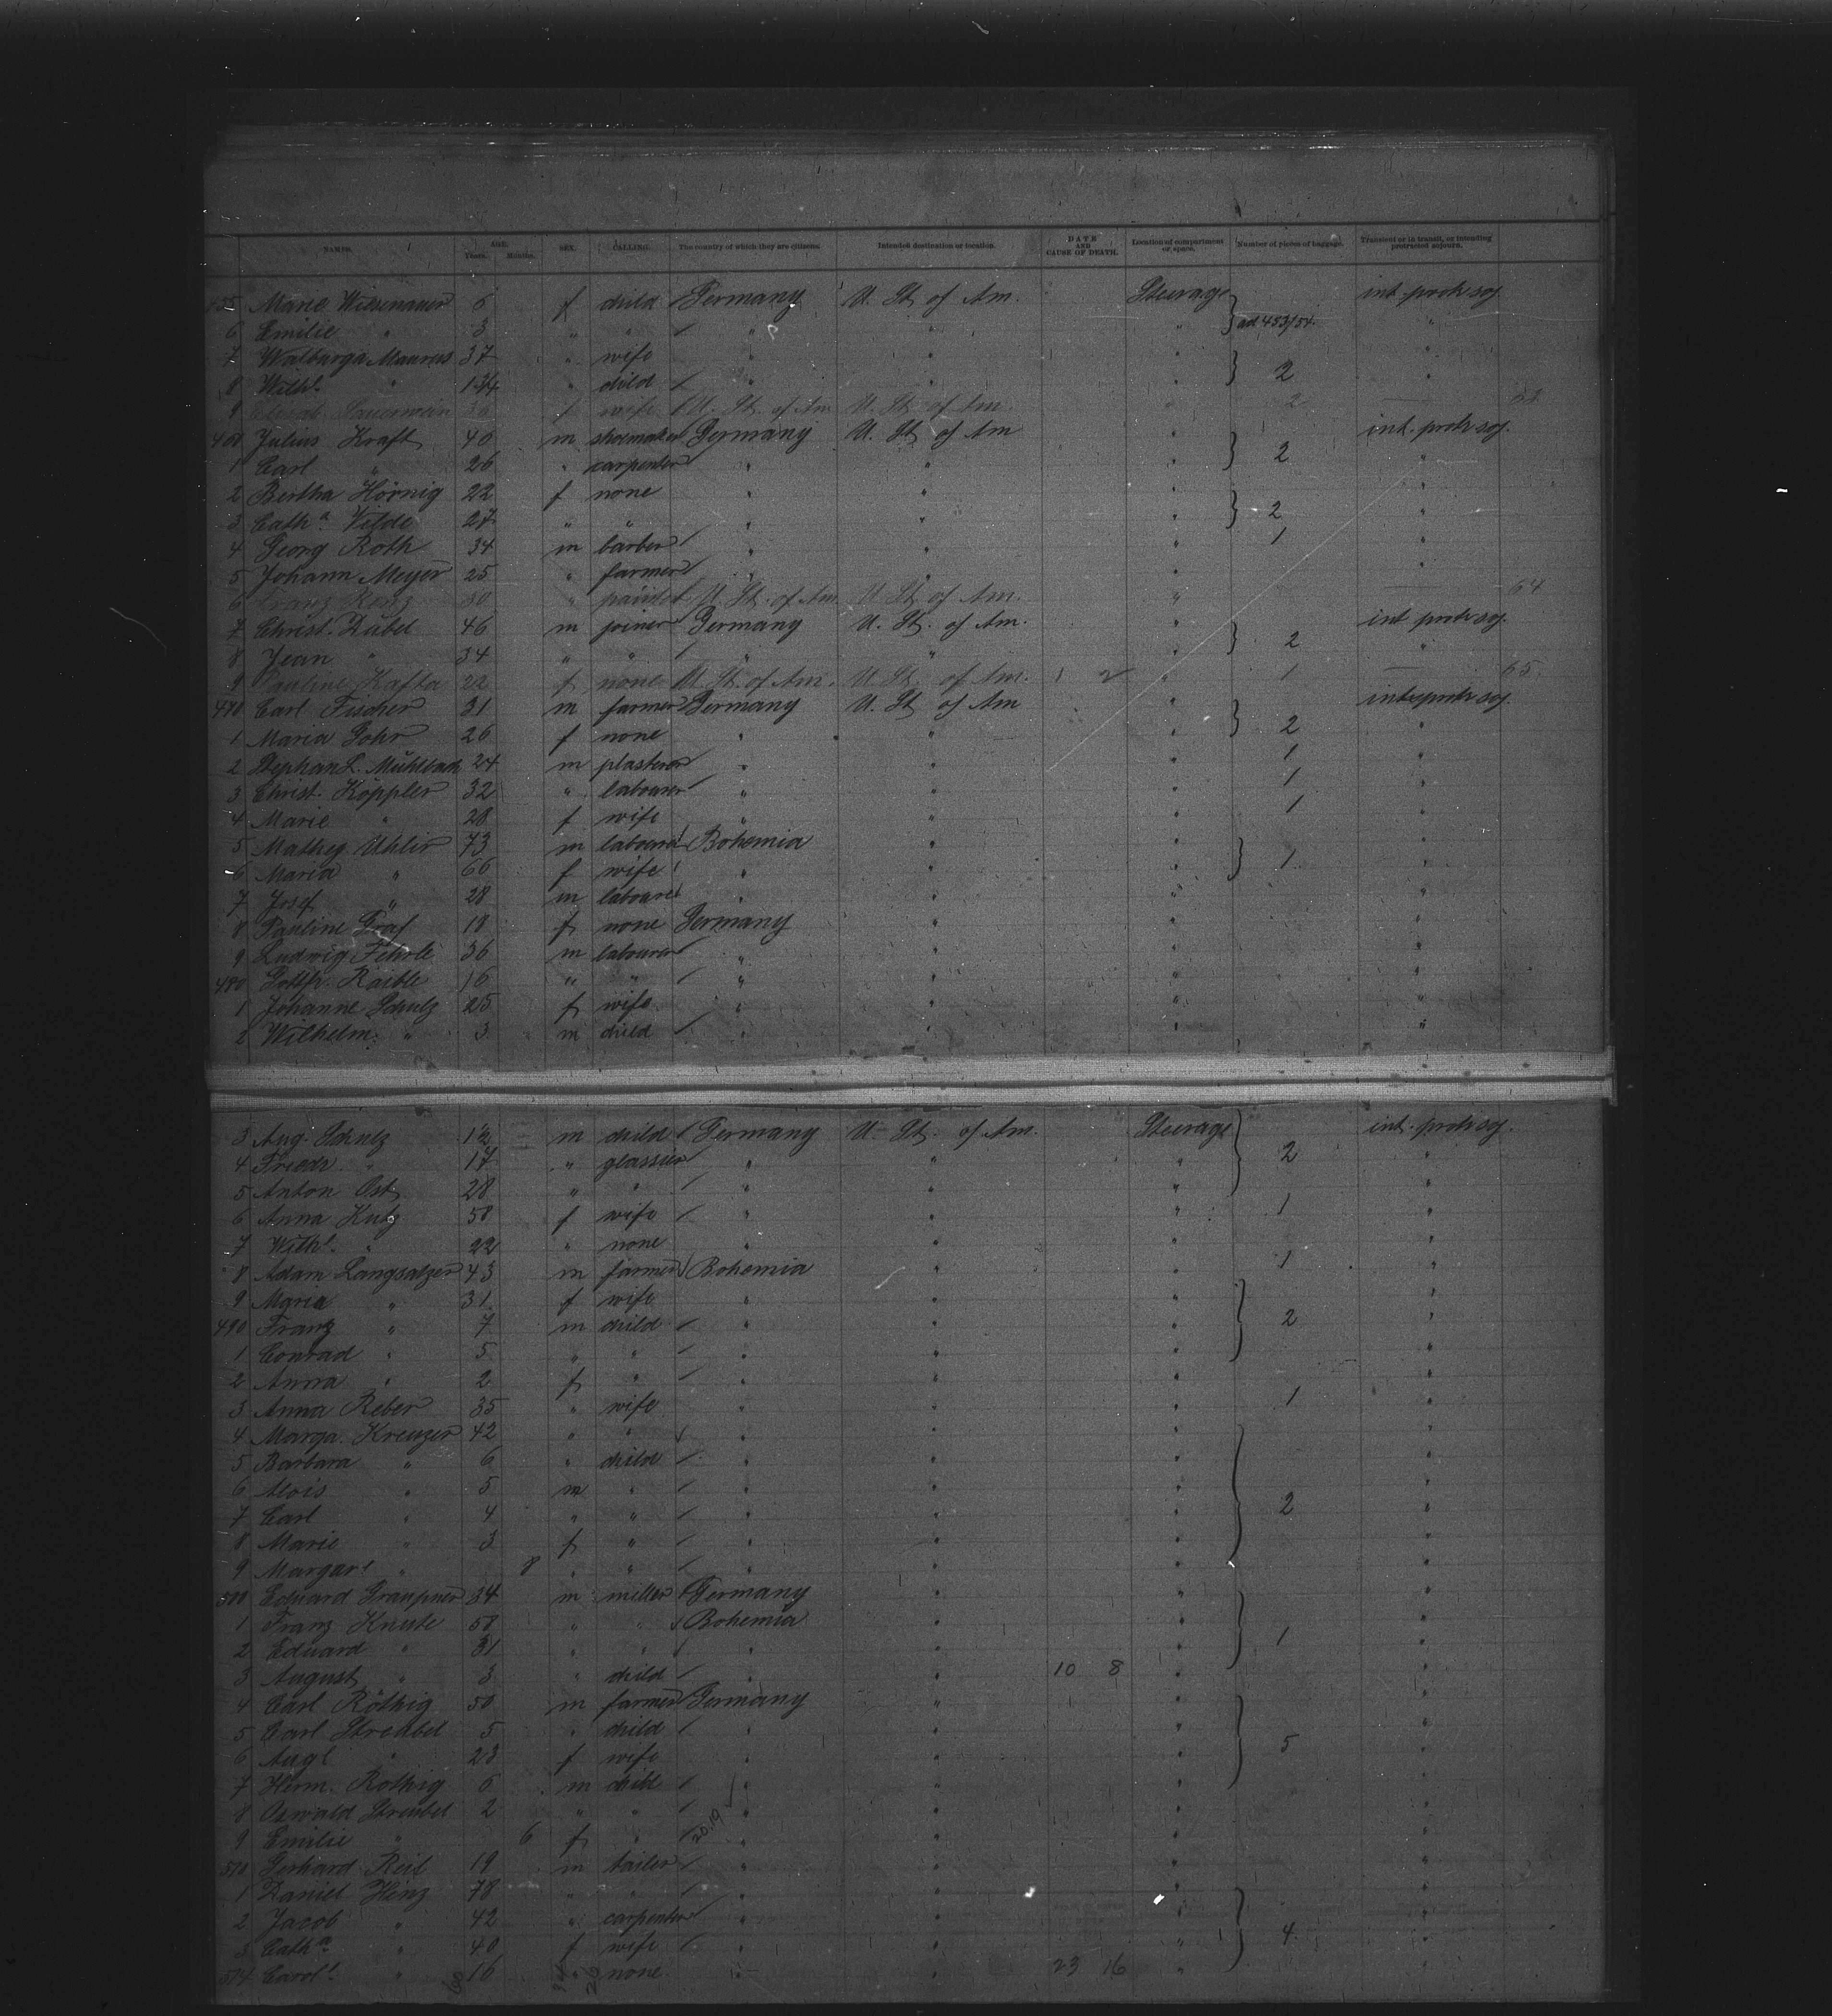 NAMES. AGE. Years. Months. SEX. CALLING. The country of which they are citizens. Intended destination or location. DATE AND CAUSE OF DEATH. Location of compartment or space. Number of pieces of baggage. Transient or in transit, or intending protracted sojourn.
Marie Wiesenauer 6 f child Germany U. St. of Am. Steerage int. protr. soj.
6 Emilie " 3 " " " " " ad 453/54. "
7 Walburga Maurus 37 " wife " " " "
8 Wilh. " " child " " " 2 "
9 f wife U. St. of Am U. St. of Am " 2
Julius Kraft 40 m shoemaker Germany U. St. of Am " int. protr. soj.
1 Carl " 26 " carpenter " " " 2 "
2 Bertha Hörnig 22 f none " " " "
3 Catha. Wilde 27 " " " " " 2 "
4 Georg Roth 34 m barber " " " 1 "
5 Johann Meyer 25 " farmer " " " "
6 Franz Renz 30 " painter U. St. of Am. U. St. of Am. " 64
7 Christ. Dübel 46 m joiner Germany U. St. of Am. " int. protr. soj.
8 Jean " 34 " " " " " 2 "
9 Pauline Kafta 22 f none U. St. of Am. U. St. of Am. 1 2 " 1 65
470 Carl Fischer 31 m farmer Germany U. St. of Am " int. protr. soj.
1 Maria Gohr 26 f none " " " 2 "
2 Stephan L. Mühlbach 24 m plasterer " " " 1 "
3 Christ. Köppler 32 " labourer " " " 1 "
4 Marie " 28 f wife " " " 1 "
5 Mathey Uhlir 73 m labourer Bohemia " " "
6 Maria " 66 f wife " " " 1 "
7 Josef " 28 m labourer " " " "
8 Pauline Graf 18 f none Germany " " "
9 Ludwig Fehrle 36 m labourer " " " "
480 Gottfr. Raible 16 " " " " " "
1 Johanne Schulz 25 f wife " " " "
2 Wilhelm " 3 m child " " " "
3 Aug. Schulz m child Germany U. St. of Am. Steerage int. protr. soj.
4 Friedr. " 17 " glassier " " " 2 "
5 Anton Ost 28 " " " " " "
6 Anna Kutz 58 f wife " " " 1 "
7 Wilh. " 22 " none " " " "
8 Adam Langsalzer 43 m farmer Bohemia " " 1 "
9 Maria " 31 f wife " " " "
490 Franz " 7 m child " " " 2 "
1 Conrad " 5 " " " " " "
2 Anna " 2 f " " " " "
3 Anna Reber 35 " wife " " " 1 "
4 Marga. Kreuzer 42 " " " " " "
5 Barbara " 6 " child " " " "
6 Alois " 5 m " " " " "
7 Carl " 4 " " " " " 2 "
8 Marie " 3 f " " " " "
9 Margar. " 8 " " " " " "
500 Eduard Graupner 34 m miller Germany " " "
1 Franz 58 " " Bohemia " " "
2 Eduard " 31 " " " " " 1 "
3 August " 3 " child " " 10 8 " "
4 Carl Röthig 50 m farmer Germany " " "
5 Carl Streubel 5 " child " " " "
6 " 23 f wife " " " 5 "
7 Herm. Röthig 6 m child " " " "
8 Oswald Streubel 2 " " " " " "
9 Emilie " 6 f " " " " "
510 Gerhard Reil 19 m tailor " " " "
1 Daniel Hinz 78 " " " " " "
2 Jacob " 42 " carpenter " " " "
3 Catha. " 40 f wife " " " 4 "
514 Carol. " 16 " none " " 23 16 " "